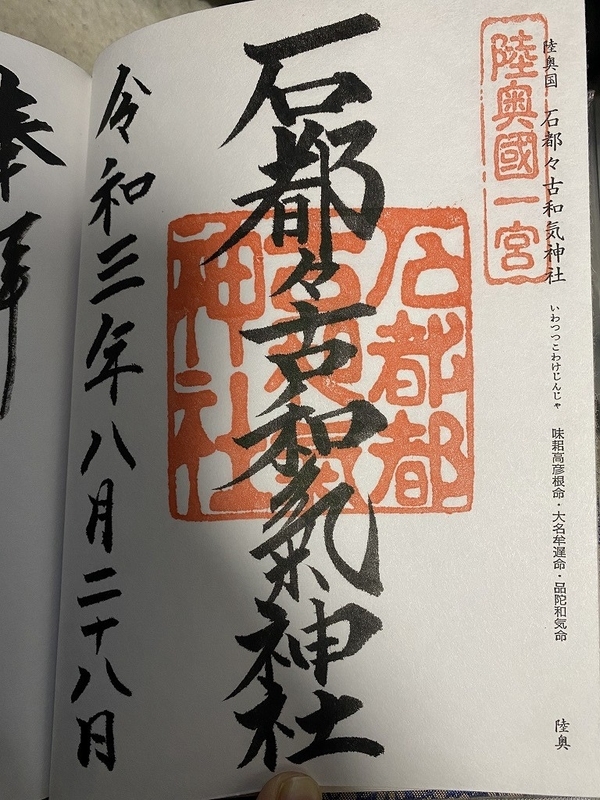 陸奥国 石都々古和気神社 いわつつこわけじんじゃ 味耜高彦根命・大名牟遅命・品陀和気命 陸奥
陸奥國一宮
石都々古和氣神社
石都都
古和氣
神社
令和三年八月二十八日
奉拝